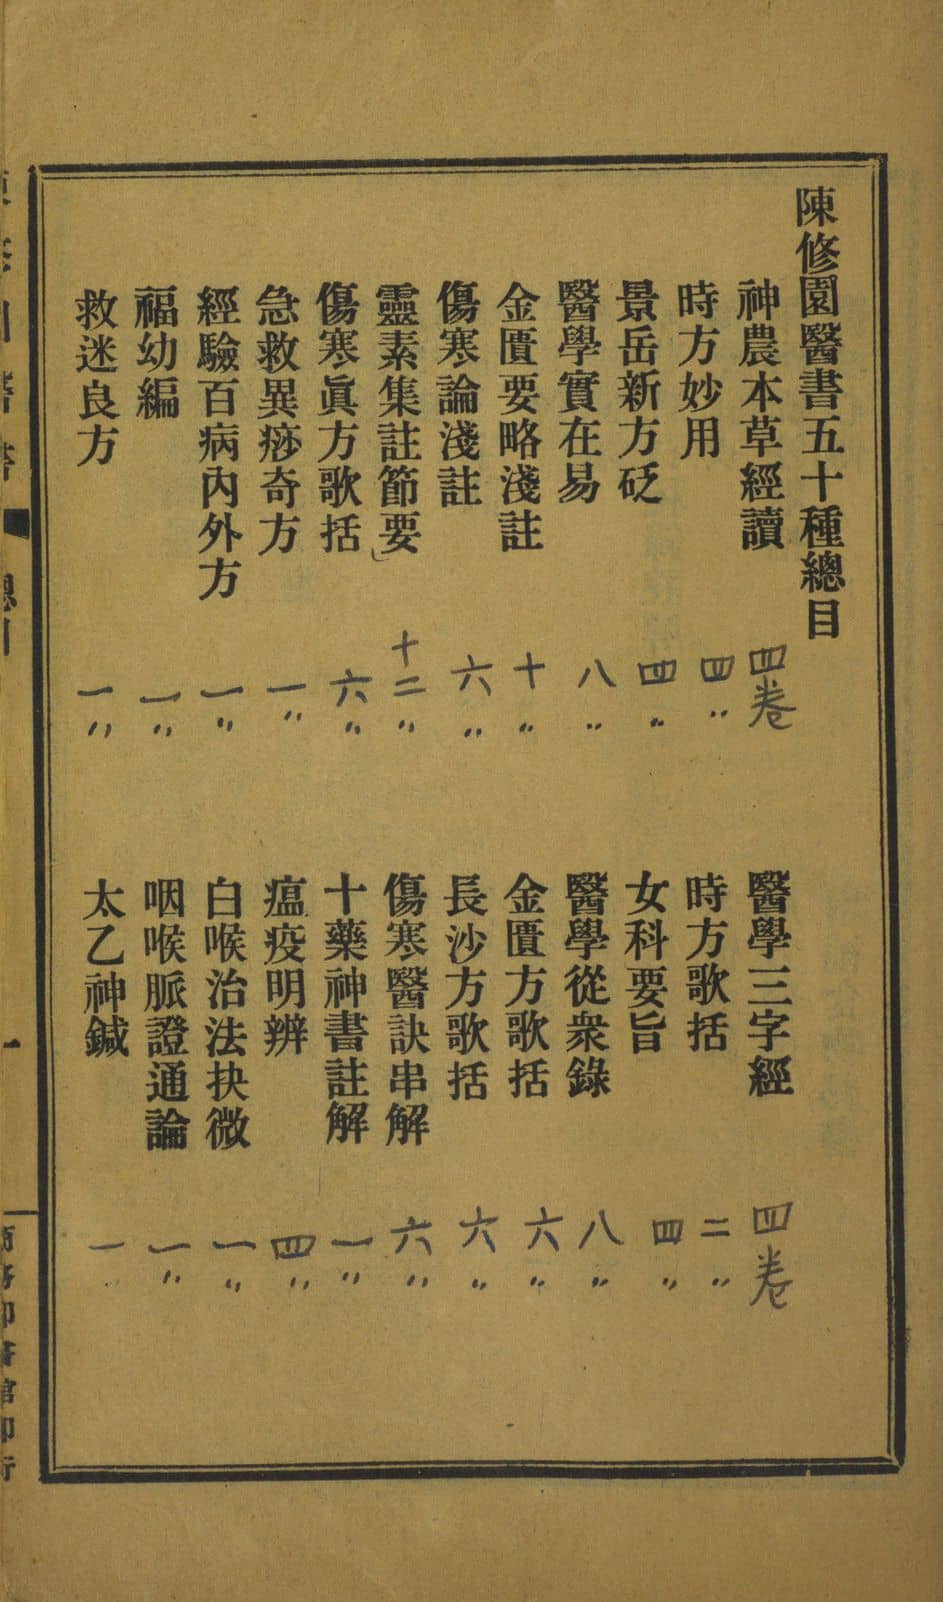 陳修園醫書五十種總目
神農本草經讀 四卷
醫學三字經 四卷
時方妙用 四〃
時方歌括 二〃
景岳新方砭 四〃
女科要旨 四〃
醫學實在易 八〃
醫學從衆錄 八〃
金匱要略淺註 十〃
金匱方歌括 六〃
傷寒論淺註 六〃
長沙方歌括 六〃
靈素集註節要 十二〃
傷寒醫訣串解 六〃
傷寒眞方歌括 六〃
十藥神書註解 一〃
急救異痧奇方 一〃
瘟疫明辨 四〃
經驗百病內外方 一〃
白喉治法抉微 一〃
福幼編 一〃
咽喉脈證通論 一〃
救迷良方 一〃
太乙神鍼 一